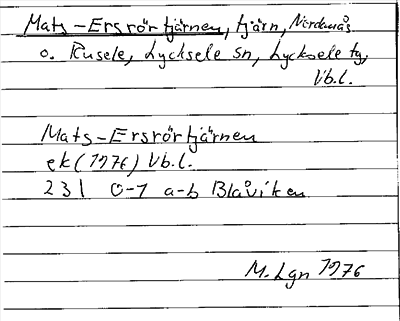 Mats-Ersrörtjärnen, tjärn, Nordanås
o. Rusele, Lycksele sn, Lycksele tg,
Vb.l.
Mats-Ersrörtjärnen
ek (1976) Vb.l.
231 0-1 a-b Blåviken
M. Lgn 1976